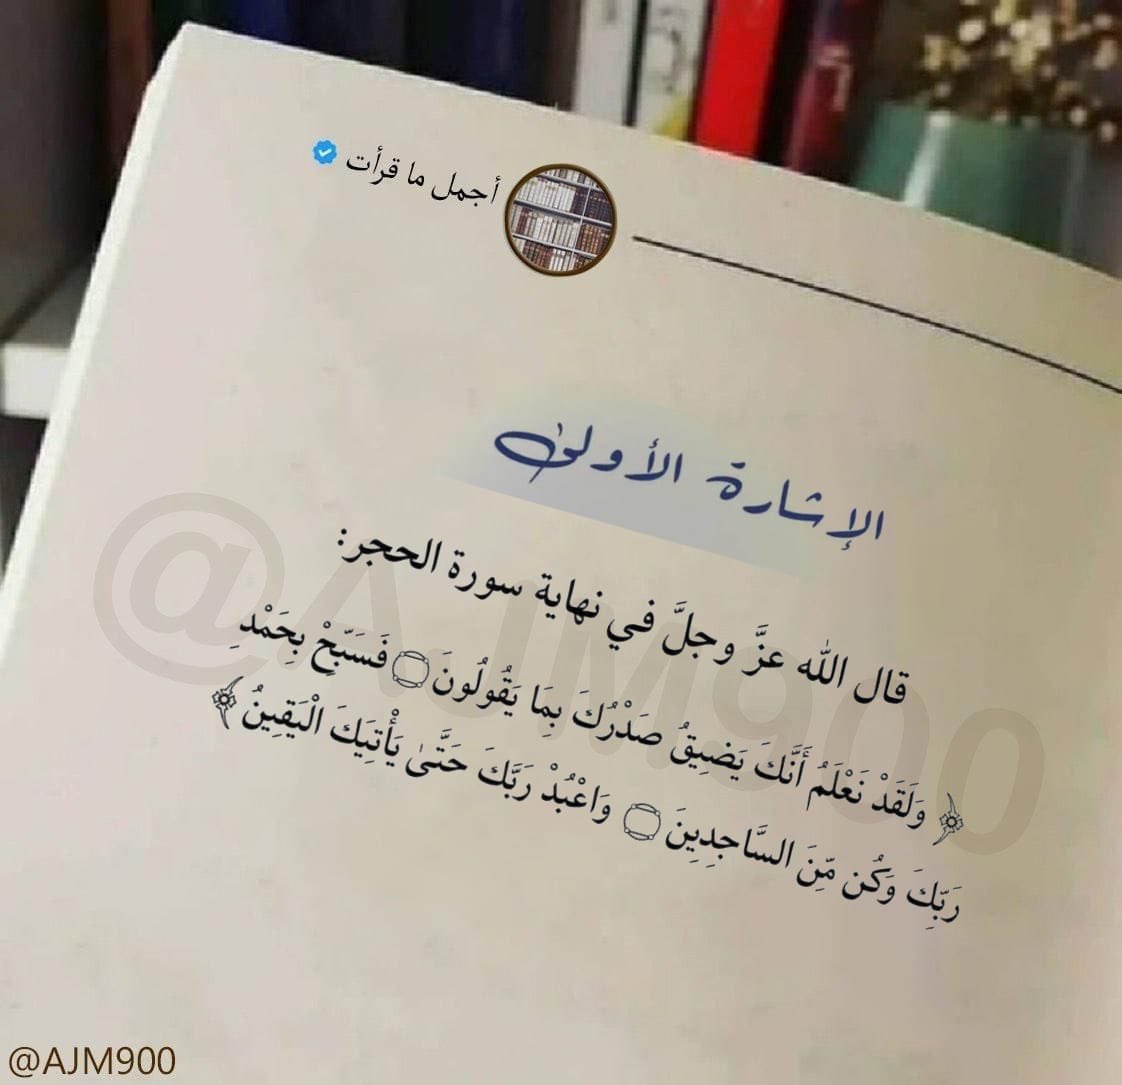 أجمل ما قرأت
الإشارة الأولى
قال الله عزَّ وجلَّ في نهاية سورة الحجر:
﴿ وَلَقَدْ نَعْلَمُ أَنَّكَ يَضِيقُ صَدْرُكَ بِمَا يَقُولُونَ ۝ فَسَبِّحْ بِحَمْدِ
رَبِّكَ وَكُن مِّنَ السَّاجِدِينَ ۝ وَاعْبُدْ رَبَّكَ حَتَّىٰ يَأْتِيَكَ الْيَقِينُ ﴾
@AJM900
@AJM900